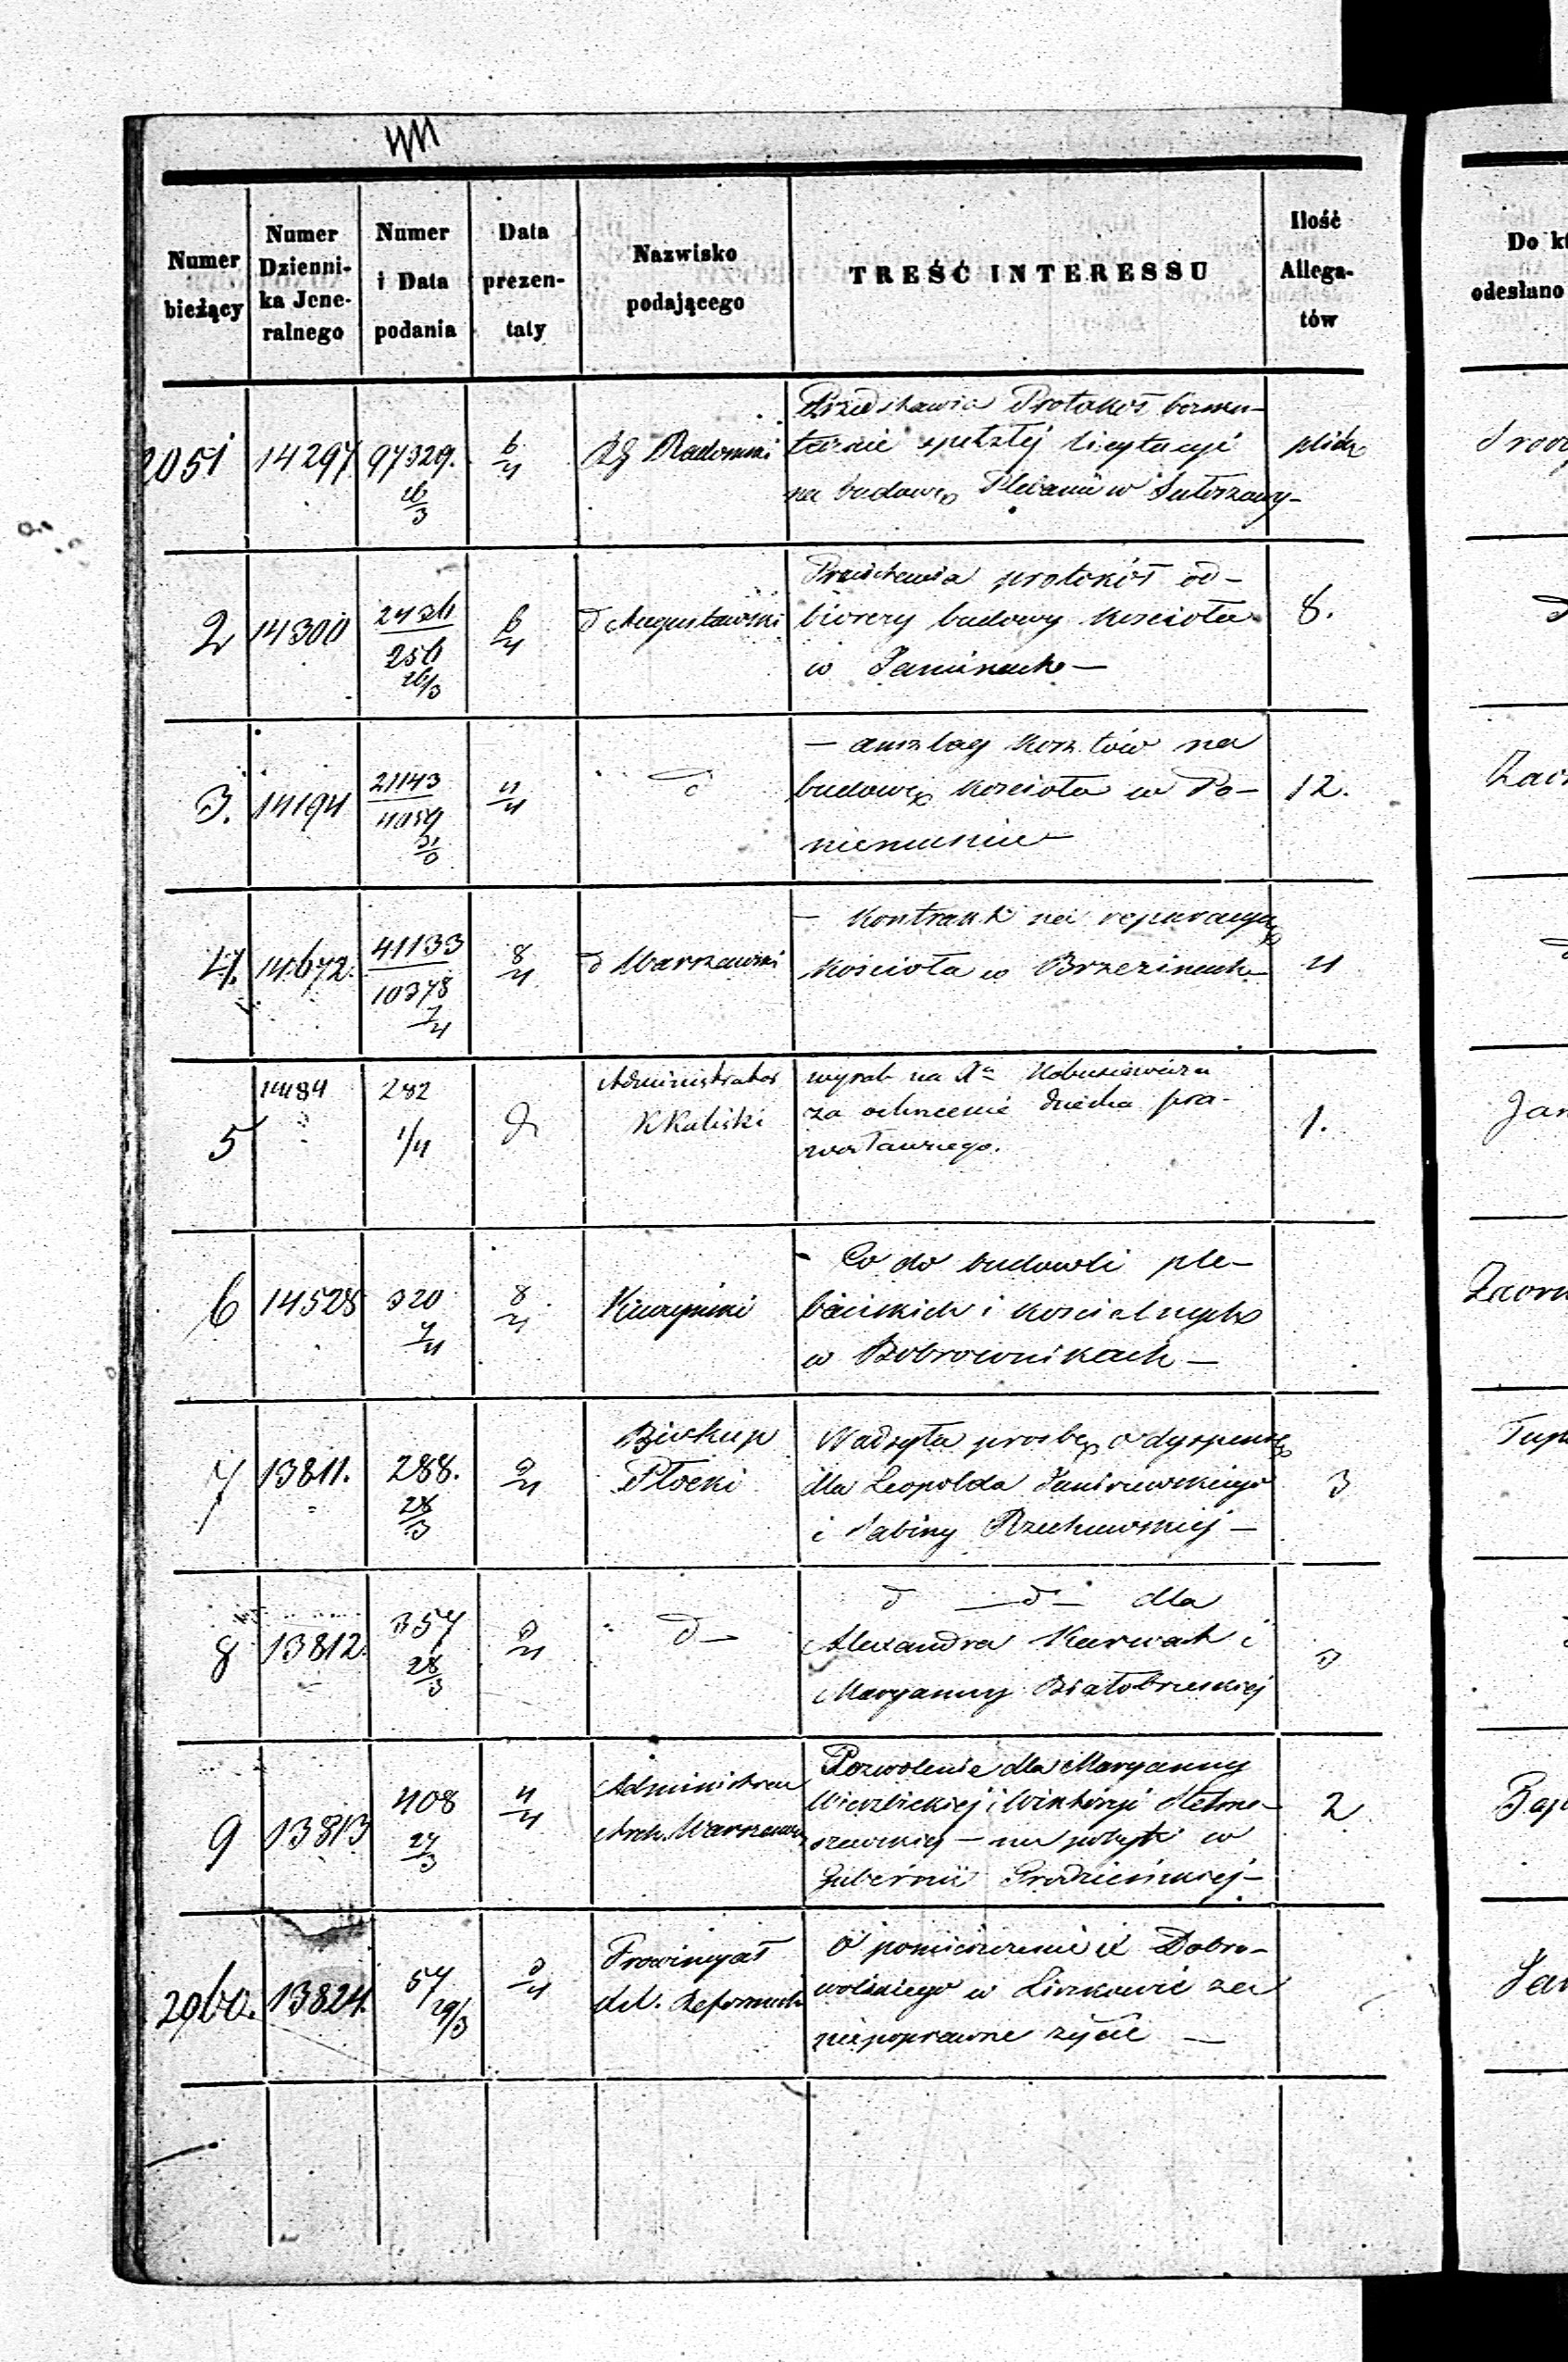 Numer bieżący
Numer Dzienni-
ka Jene-
ralnego
Numer i Data podania
Data prezen-
taty
Nazwisko podającego
TREŚĆ INTERESSU
Ilość Allega-
tów
Do
odesłano
2051 14297 97329. 26/3 6/4 Radomski
Przedstawia Protokół bezsku-
tecznie spełzłej licytacyi
na budowę Plebanii w
2 14300 2436/256 26/3 6/4 d Augustowski 8.
Przedstawia protokół od-
biorczy budowy Kościoła
w Janinach —
3. 14194 21143/4059 31/3 4/4 d 12.
— anszlag Kosztów na
budowę Kościoła w Po-
niemuniu —
4. 14672. 41133/10378 7/4 8/4 d Warszawski 4
— Kontrakt na reparacyę
Kościoła w Brzezinach
5 14184 282 1/4 d 1.
Administrator
K Kaliski
wyrok na Xa
za ochrzcenie dziecka pra-
wosławnego.
6 14528 320 7/4 8/4
Co do budowli ple-
bańskich i kościelnych
w Bobrownikach —
7 13811. 288. 28/3 3/4 3
Biskup
Płocki
Nadsyła prośbę o dyspensę
dla Leopolda
i Sabiny
8 13812. 357 28/3 3/4 d — 3
d — d — dla
Alexandra Kurwak i
Maryanny Białobrzeskiej
9 13813 408 27/3 4/4 2
Administrator
Arch. Warszaws
Pozwolenie dla Maryanny
Wierzbickiej i Wiktoryi
— na pobyt w
Gubernii Grodzieńskiej —
2060. 13824. 57 29/3 3/4
Prowincyał
Reformatów
O pomieszczenie X Dobro-
wolskiego w Liszkowie za
niepoprawne życie —